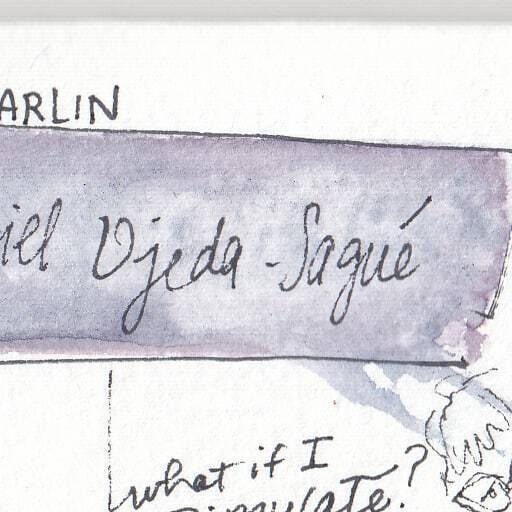 ARLIN
iel Ojeda-Sagué
what if I
?